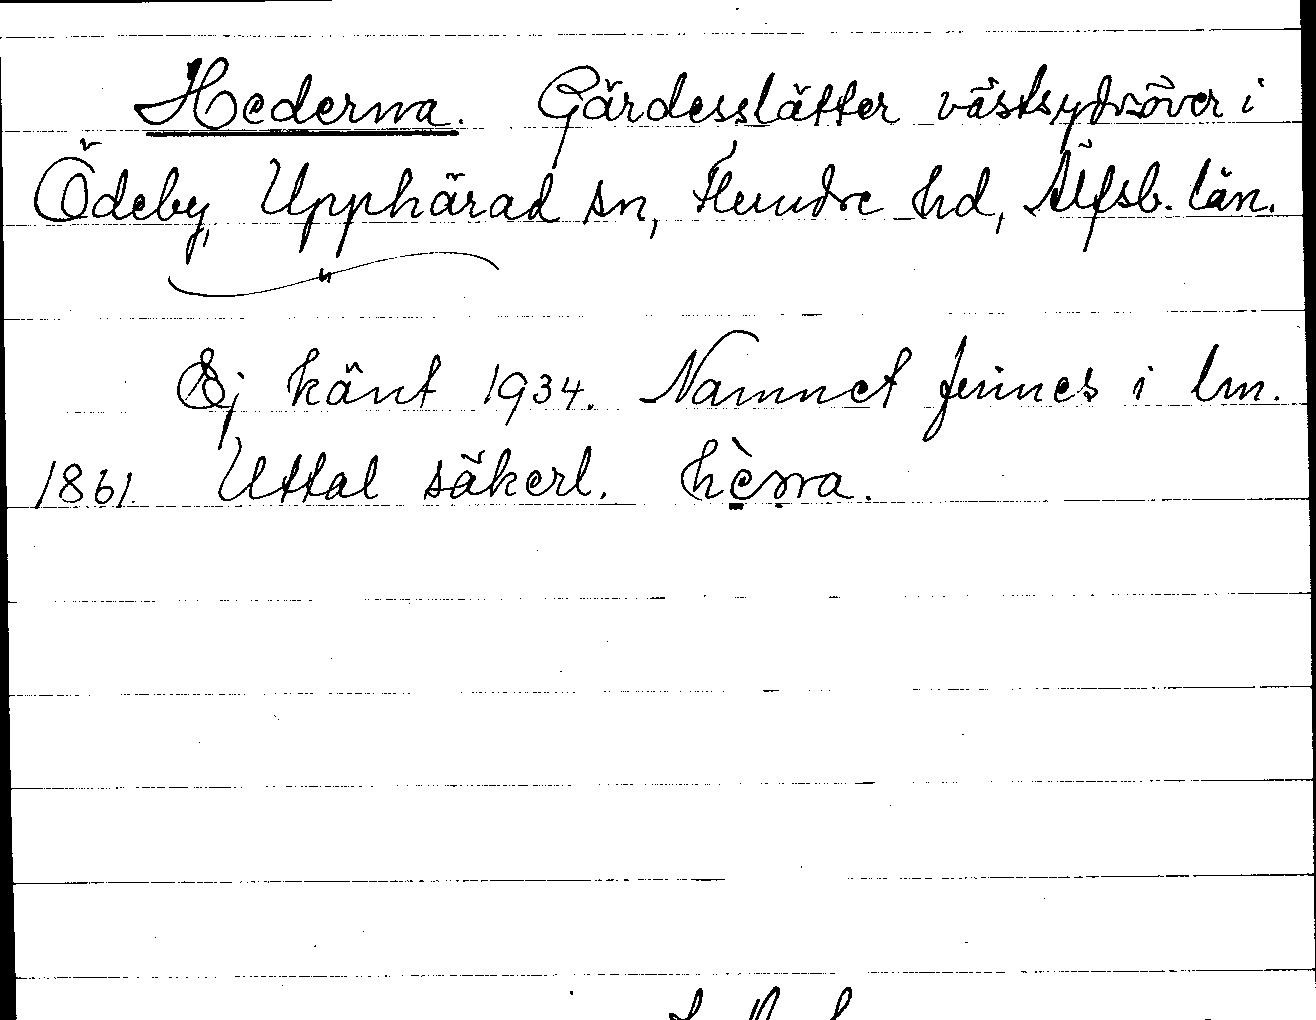 Hederna. Gärdesslätter västsydväver i
Ödeby, Upphärad sn, Flundre hd, Älfsb. län.
Ej känt 1934. Namnet finnes i lm.
1861. Uttal säkerl.